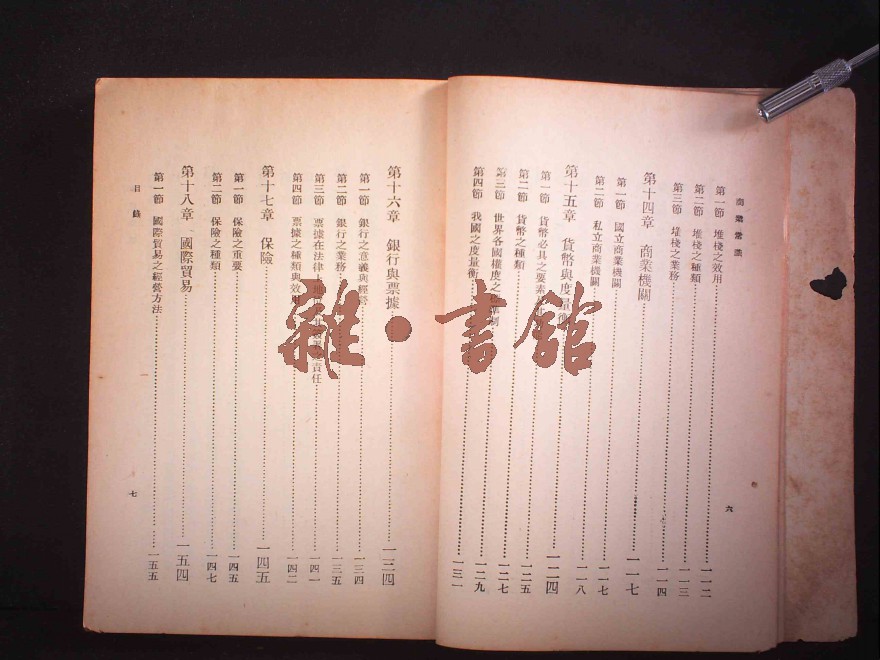 商業常識
第一節 堆棧之效用……一一二
第二節 堆棧之種類……一一三
第三節 堆棧之業務……一一四
第十四章 商業機關……一一七
第一節 國立商業機關……一一七
第二節 私立商業機關……一一八
第十五章 貨幣與度量衡……一二四
第一節 貨幣必具之要素……一二五
第二節 貨幣之種類……一二七
第三節 世界各國權度之……一二九
第四節 我國之度量衡……一三一
六
第十六章 銀行與票據……一三四
第一節 銀行之意義與經營……一三四
第二節 銀行之業務……一三五
第三節 票據在法律上……責任……一四一
第四節 票據之種類與效用……一四二
第十七章 保險……一四五
第一節 保險之重要……一四五
第二節 保險之種類……一四七
第十八章 國際貿易……一五四
第一節 國際貿易之經營方法……一五五
目錄
七
雜·書館